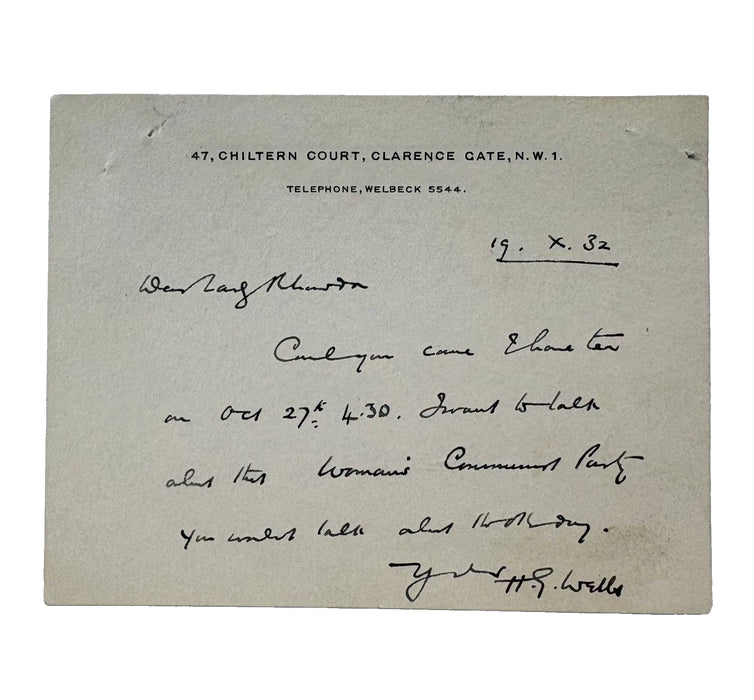 47, CHILTERN COURT, CLARENCE GATE, N.W.1.
TELEPHONE, WELBECK 5544.
19. X. 32
Dear Lady Rhondda
Could you come & have tea
on Oct 27th 4.30. I want to talk
about that Woman's Communist Party
You wouldn't talk about the other day.
Yours H.G. Wells